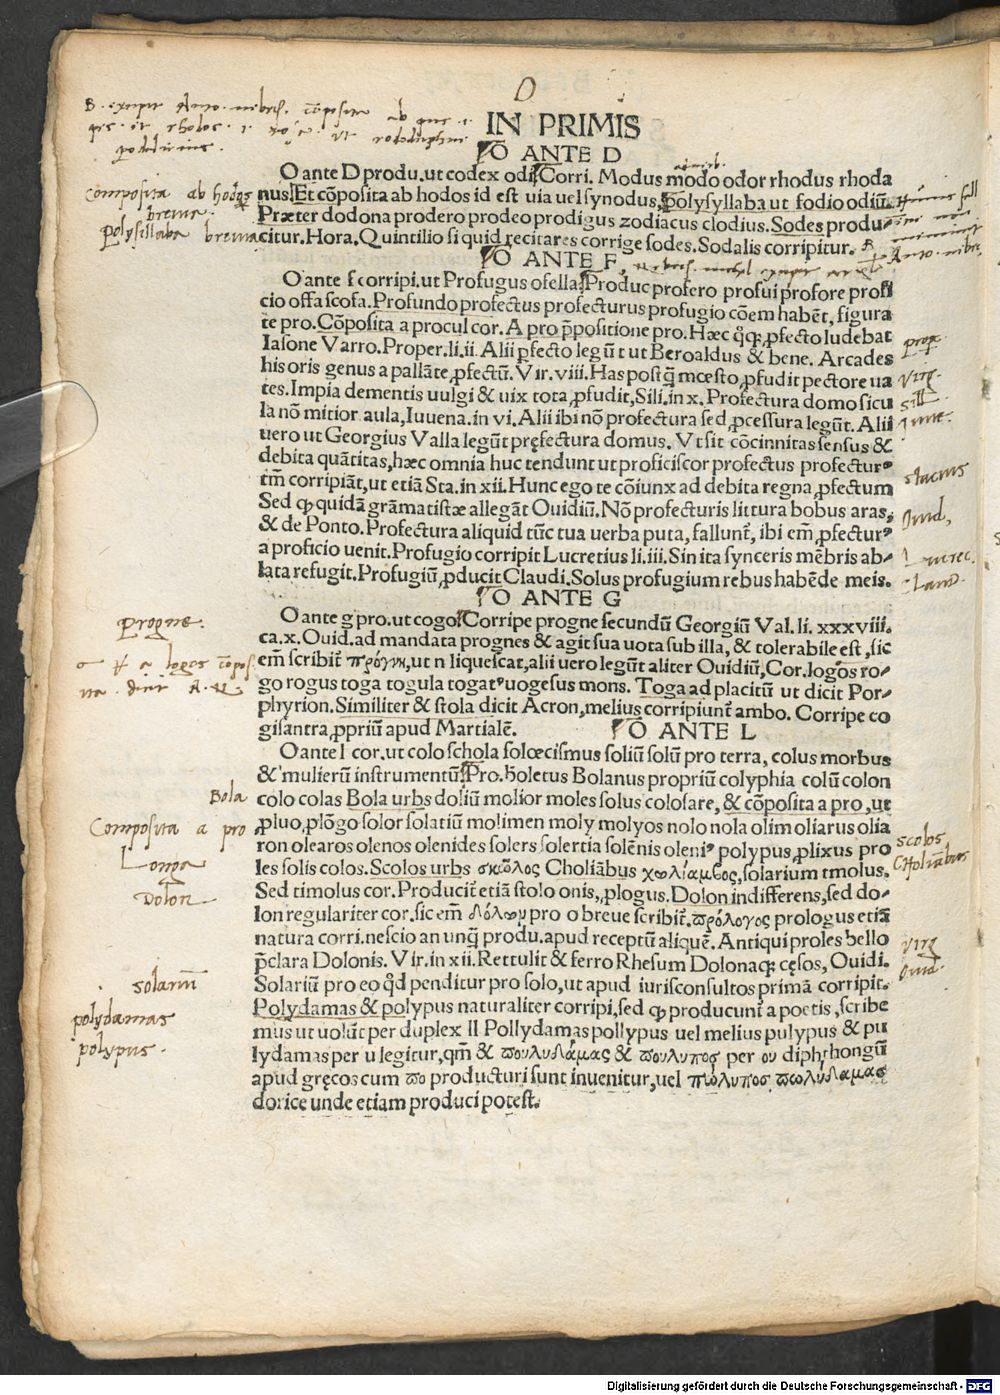 O
IN PRIMIS
O ANTE D
O ante D produ. ut codex odi Corri. Modus modo odor rhodus rhoda
nus. Et cõposita ab hodos id est uia uel synodus, Polysyllaba ut fodio odiũ.
Præter dodona prodero prodeo prodigus zodiacus clodius. Sodes produ-
citur. Hora. Quintilio si quid recitares corrige sodes. Sodalis corripitur.
O ANTE F
O ante f corripi. ut Profugus ofella. Produc profero profui profore profi
cio offa scofa. Profundo profectus profecturus profugio cõem habẽt, figura
te pro. Cõposita a procul cor. A pro p̄positione pro. Hæc q̊q; ꝓfecto ludebat
Iasone Varro. Proper. li. ii. Alii ꝓfecto legũt ut Beroaldus & bene. Arcades
his oris genus a pallãte, ꝓfectũ. Vir. viii. Has postq̃ mœsto, ꝓfudit pectore ua
tes. Impia dementis uulgi & uix tota, ꝓfudit, Sili. in x. Profectura domo sicu
la nõ mitior aula, Iuuena. in vi. Alii ibi nõ profectura sed, ꝓcessura legũt. Alii
uero ut Georgius Valla legũt pręfectura domus. Vt sit cõcinnitas sensus &
debita quãtitas, hæc omnia huc tendunt ut proficiscor profectus profectur⁹
tm̃ corripiãt, ut etiã Sta. in xii. Hunc ego te cõiunx ad debita regna, ꝓfectum
Sed ꝙ quidã grãmatistæ allegãt Ouidiũ. Nõ profecturis littura bobus aras,
& de Ponto. Profectura aliquid tũc tua uerba puta, fallunt̃, ibi em̃, ꝓfectur⁹
a proficio uenit. Profugio corripit Lucretius li. iii. Sin ita synceris mẽbris ab-
lata refugit. Profugiũ, ꝓducit Claudi. Solus profugium rebus habẽde meis.
O ANTE G
O ante g pro. ut cogo Corripe progne secundũ Georgiũ Val. li. xxxviii.
ca. x. Ouid. ad mandata prognes & agit sua uota sub illa, & tolerabile est, sic
em̃ scribit̃ πρόγνη, ut n liquescat, alii uero legũt aliter Ouidiũ, Cor. logos ro-
go rogus toga togula togat⁹ uogesus mons. Toga ad placitũ ut dicit Por-
phyrion. Similiter & stola dicit Acron, melius corripiunt̃ ambo. Corripe co
gisantra, ꝓpriũ apud Martialẽ.
O ANTE L
O ante l cor. ut colo schola solœcismus soliũ solũ pro terra, colus morbus
& mulierũ instrumentũ. Pro. boletus Bolanus propriũ colyphia colũ colon
colo colas Bola urbs doliũ molior moles solus colosare, & cõposita a pro, ut
ꝓluo, plõgo solor solatiũ molimen moly molyos nolo nola olim oliarus olia
ron olearos olenos olenides solers solertia solẽnis oleni⁹ polypus, ꝓlixus pro
les solis colos. Scolos urbs σκῶλος Choliãbus χωλίαμβος, solarium tmolus.
Sed timolus cor. Producit̃ etiã stolo onis, ꝓlogus. Dolon indifferens, sed do-
lon regulariter cor. sic em̃ δόλων pro o breue scribit̃. πρόλογος prologus etiã
natura corri. nescio an unq̃ produ. apud receptũ aliquẽ. Antiqui proles bello
p̄clara Dolonis. Vir. in xii. Rettulit & ferro Rhesum Dolonaq; cęsos, Ouidi.
Solariũ pro eo q̊d penditur pro solo, ut apud iurisconsultos primã corripit.
Polydamas & polypus naturaliter corripi, sed ꝙ producunt̃ a poetis, scribe
mus ut uolũt per duplex ll Pollydamas pollypus uel melius pulypus & pu
lydamas per u legitur, qm̃ & πουλυδάμας & πουλυπος per ου diphthongũ
apud gręcos cum πο producturi sunt inuenitur, uel πώλυπος πωλυδαμας
dorice unde etiam produci potest.
composita ab hodos
brevia.
polysillaba brevia
prop.
virg.
Sill
Iuve.
stacius
Ovid,
Lucrec.
Claud.
progne.
Bola
Composita a pro
Longa
Dolon
scolos
Choliãbus
virg
Ovid.
solariũ
polydamas
polypus.
Digitalisierung gefördert durch die Deutsche Forschungsgemeinschaft - DFG